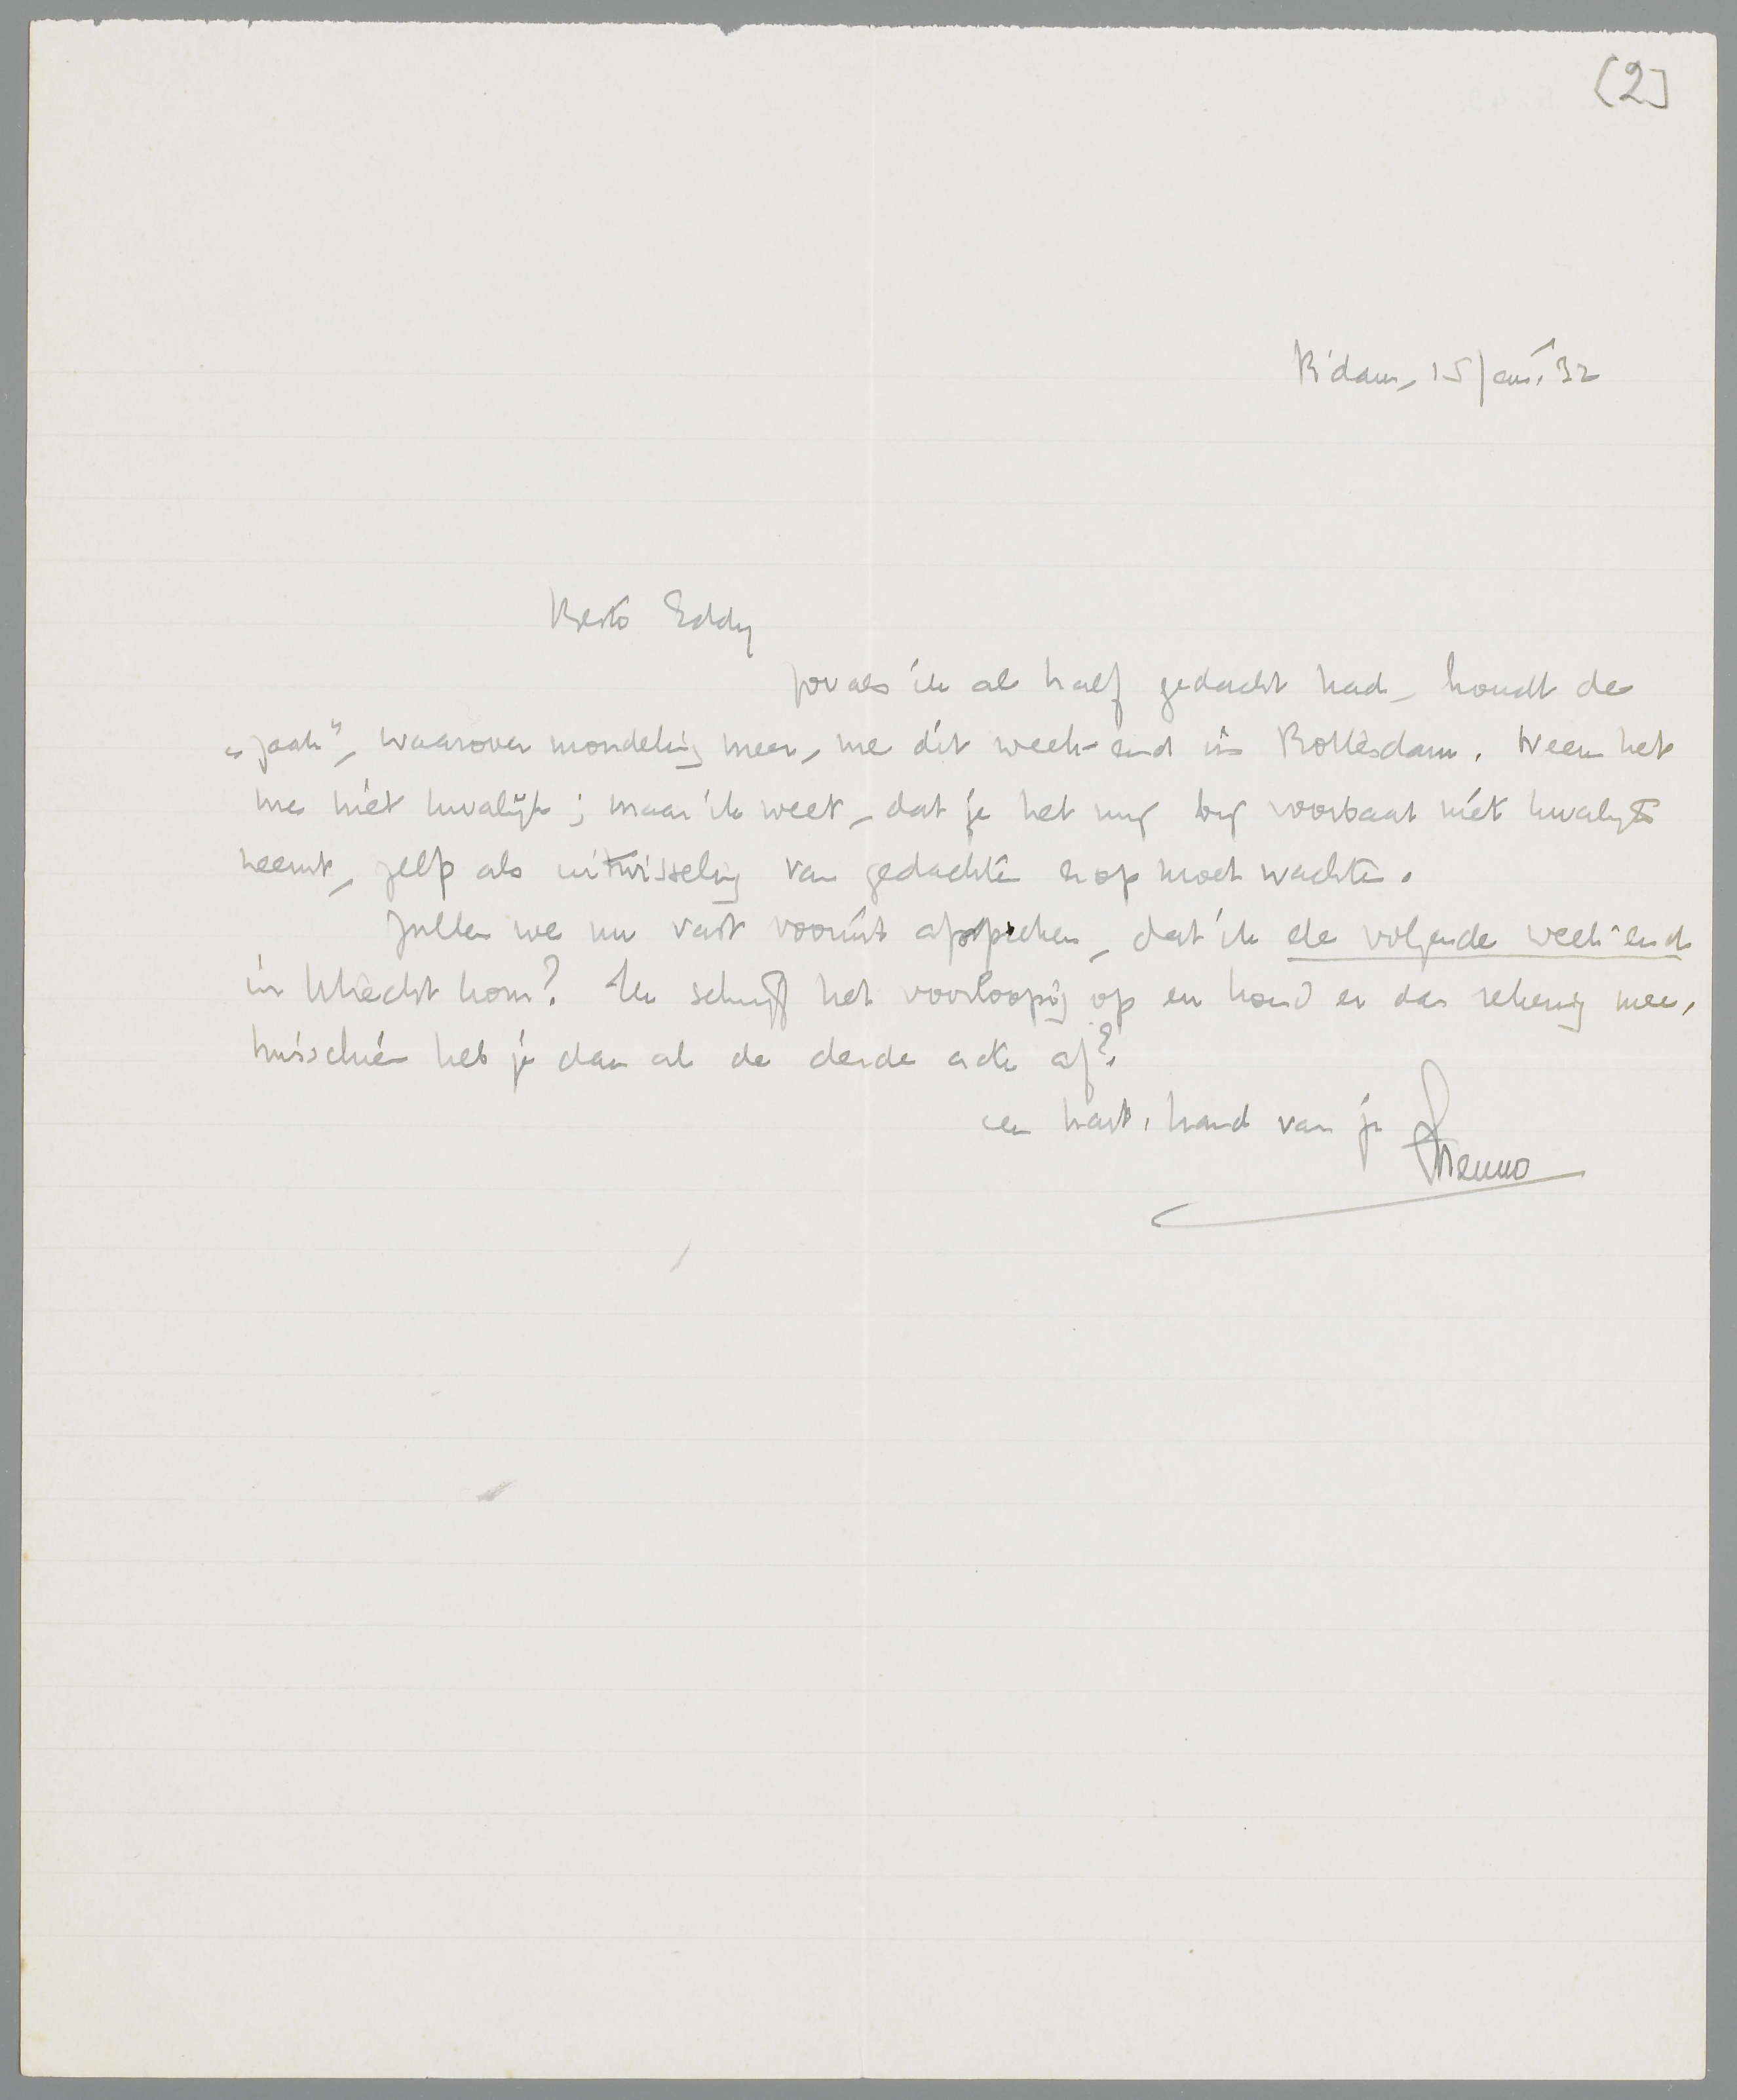 [2]
R'dam, 15 Jan. '32
Beste Eddy
Zooals ik al half gedacht had, houdt de
„zaak”, waarover mondeling meer, me dit week-end in Rotterdam. Neem het
me niet kwalijk; maar ik weet, dat je het mij bij voorbaat niet kwalijk
neemt, zelfs als uitwisseling van gedachten erop moet wachten.
Zullen we nu vast vooruit afspreken, dat ik de volgende week-end
in Utrecht kom? Ik schrijf het voorloopig op en houd er dan rekening mee,
misschien heb je dan al de derde acte af?
een hart. hand van je
Menno